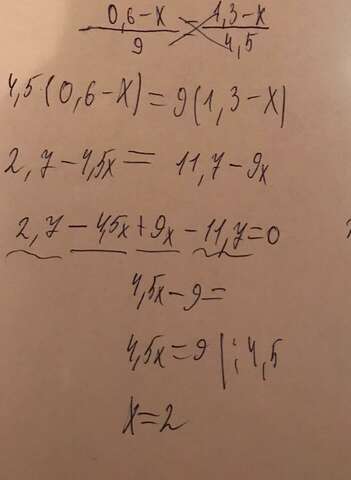 0,6-x / 9 = 1,3-x / 4,5
4,5(0,6-x)=9(1,3-x)
2,7-4,5x= 11,7-9x
2,7-4,5x+9x-11,7=0
4,5x-9=
4,5x=9 |:4,5
x=2